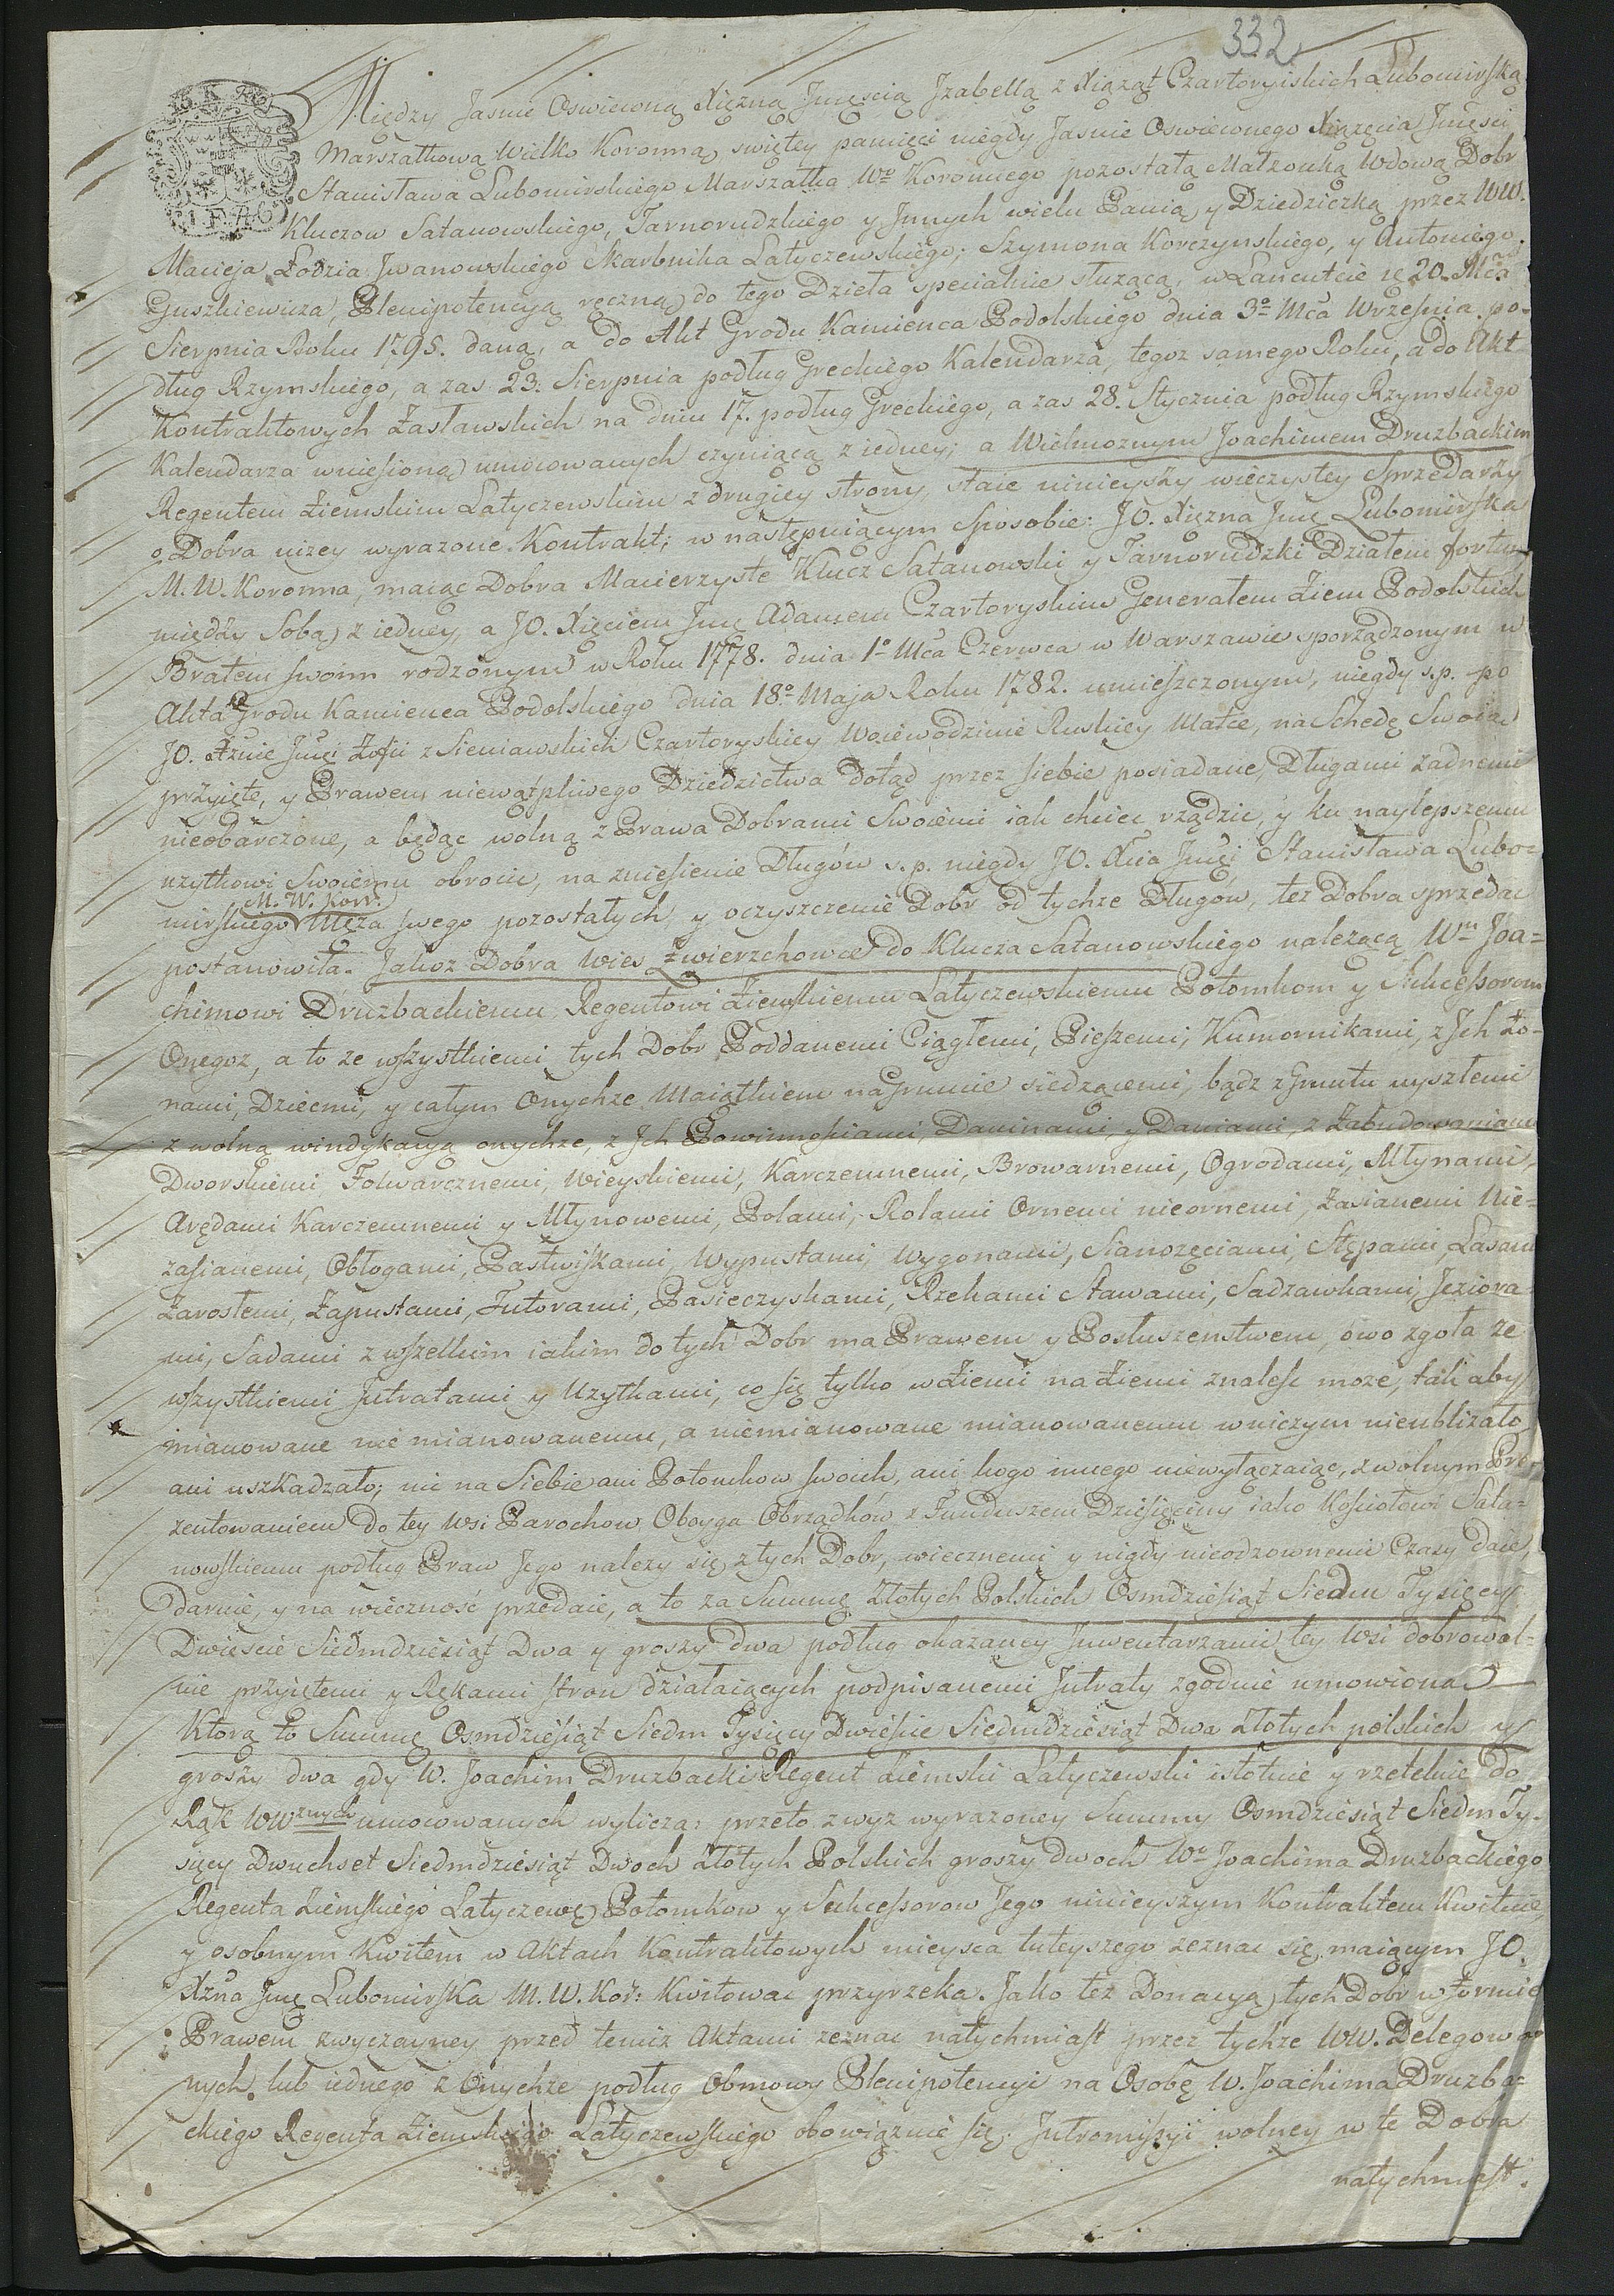 332
Między Jasnie Oswieconą Xiężną Jmcścią Jzabellą z Xiąząt Czartoryiskich Lubomirską
Marszałkową Wielko Koronną, swiętey pamięci niegdy Jasnie Oswieconego Xiążęcia Jmcści
Stanisława Lubomirskiego Marszałka Wo Koronnego pozostałą Małzonką Wdową Dobr
Kluczow Satanowskiego, Tarnorudzkiego y Jnnych wielu Panią, y Dziedziczką przez WW.
Macieja Łodzia Jwanowskiego Skarbnika Latyczewskiego; Szymona Korczynskiego, y Antoniego
Guszkiewicza, Plenipotencyą ręczną do tego Dzieła specialnie służącą, w Lancutcie 20. Mca
Sierpnia Roku 1795. daną, a do Akt Grodu Kamienca Podolskiego dnia 3o Mca Września po-
dług Rzymskiego, a zas 23. Sierpnia podług Greckiego Kalendarza, tegoz samego Roku, a do Akt
Kontraktowych Zasławskich na dniu 17. podług Greckiego, a zas 28. Stycznia podług Rzymskiego
Kalendarza wniesioną umocowanych czyniącą z iedney; a Wielmoznym Joachimem Druzbackim
Regentem Ziemskim Latyczewskim z drugiey strony, staie ninieyszy wieczystey Sprzedarzy
o Dobra nizey wyrazone Kontrakt; w następuiącym Sposobie: JO. Xięzna Jmc Lubomirska
M. W. Koronna, maiąc Dobra Macierzyste Klucz Satanowski y Tarnorudzki Działem fortun
między Sobą z iedney, a JO. Xięciem Jmc Adamem Czartoryskim Generałem Ziem Podolskich
Bratem swoim rodzonym w Roku 1778. dnia 1o Mca Czerwca w Warszawie sporządzonym w
Akta Grodu Kamienca Podolskiego dnia 18o Maja Roku 1782. umieszczonym, niegdy s.p. po
JO. Xżnie Jmci Zofii z Sieniawskich Czartoryskiey Woiewodzinie Ruskiey Matce, na Schedę Swoią
przyięte, y Prawem niewątpliwego Dziedzictwa dotąd przez siebie posiadane, Długami zadnemi
nieobarczone, a będąc wolną z Prawa Dobrami Swoiemi iak chciec rządzic, y ku naylepszemu
uzytkowi Swoiemu obrocic, na zniesienie Długów s.p. niegdy JO. Xcia Jmci Stanisława Lubo-
mirskiego M. W. Korr. Męza swego pozostałych, y oczyszczenie Dobr od tychze Długow, tez Dobra sprzedac
postanowiła. Jakoz Dobra Wies Zwierzchowce do Klucza Satanowskiego nalezącą Wmu Joa=
chimowi Druzbackiemu Regentowi Ziemskiemu Latyczewskiemu Potomkom y Sukcessorom
Onegoz, a to ze wszystkiemi tych Dobr Poddanemi Ciągłemi, Pieszemi, Kumornikami, z Jch Żo-
nami, Dziecmi, y całym Onychze Maiątkiem na Gruncie siedzącemi, bądz z Gruntu wyszłemi
z wolną windykacyą onychze, z Jch Powinnosciami, Daninami, y Daniami, z Zabudowaniami
Dworskiemi Folwarcznemi, Wieyskiemi, Karczemnemi, Browarnemi, Ogrodami, Młynami,
Arędami Karczemnemi y Młynowemi, Polami, Rolami Ornemi nieornemi, Zasianemi Nie-
zasianemi, Obłogami, Pastwiskami, Wypustami, Wygonami, Sianozęciami, Stępami, Lasami
Zarostemi, Zapustami, Futorami, Pasieczyskami, Rzekami Stawami, Sadzawkami, Jeziora-
mi, Sadami z wszelkim iakim do tych Dobr ma Prawem y Posłuszenstwem, owo zgoła ze
wszystkiemi Jntratami y Uzytkami, co się tylko w Ziemi na Ziemi znalesc moze, tak aby
mianowane nie mianowanemu, a niemianowane mianowanemu w niczym nieubliżało
ani uszkadzało; nic na Siebie ani Potomkow swoich, ani kogo innego niewyłączaiąc, z wolnym Pre-
zentowaniem do tey Wsi Parochow Oboyga Obrządków z Funduszem Dziesięciny iako Kosciołowi Sata-
nowskiemu podług Praw Jego nalezy się z tych Dobr, wiecznemi y nigdy nieodzownemi Czasy daie,
daruie, y na wieczność przedaie, a to za Summę Złotych Polskich Osmdziesiąt Siedm Tysięcy
Dwiescie Siedmdziesiąt Dwa y groszy dwa podług okazaney Jnwentarzami tey Wsi dobrowol-
nie przyiętemi y Rękami stron działaiących podpisanemi Jntraty zgodnie umowioną
Ktorą to Summę Osmdziesiąt Siedm Tysięcy Dwiescie Siedmdziesiąt Dwa złotych polskich y
groszy dwa gdy W. Joachim Druzbacki Regent Ziemski Latyczewski istotnie y rzetelnie do
Rąk WWznych umocowanych wylicza: przeto z wyz wyrazoney Summy Osmdziesiąt Siedm Ty-
sięcy Dwuchset Siedmdziesiąt Dwoch Złotych Polskich groszy dwoch Wo Joachima Druzbackiego
Regenta Ziemskiego Latyczewgo Potomkow y Sukcessorow Jego ninieyszym Kontraktem Kwituie,
y osobnym Kwitem w Aktach Kontraktowych mieysca tuteyszego zeznac się maiącym JO.
Xżna Jmc Lubomirska M. W. Kor: Kwitowac przyrzeka. Jako tez Donacyą tych Dobr w formie
Prawem zwyczayney przed temiz Aktami zeznac natychmiast przez tychze WW. Delegowa-
nych lub iednego z Onychze podług Obmowy Plenipotencyi na Osobę W. Joachima Druzba=
ckiego Regenta Ziemskiego Latyczewskiego obowiązuie się. Jntromissyi wolney w te Dobra
natychmiast.